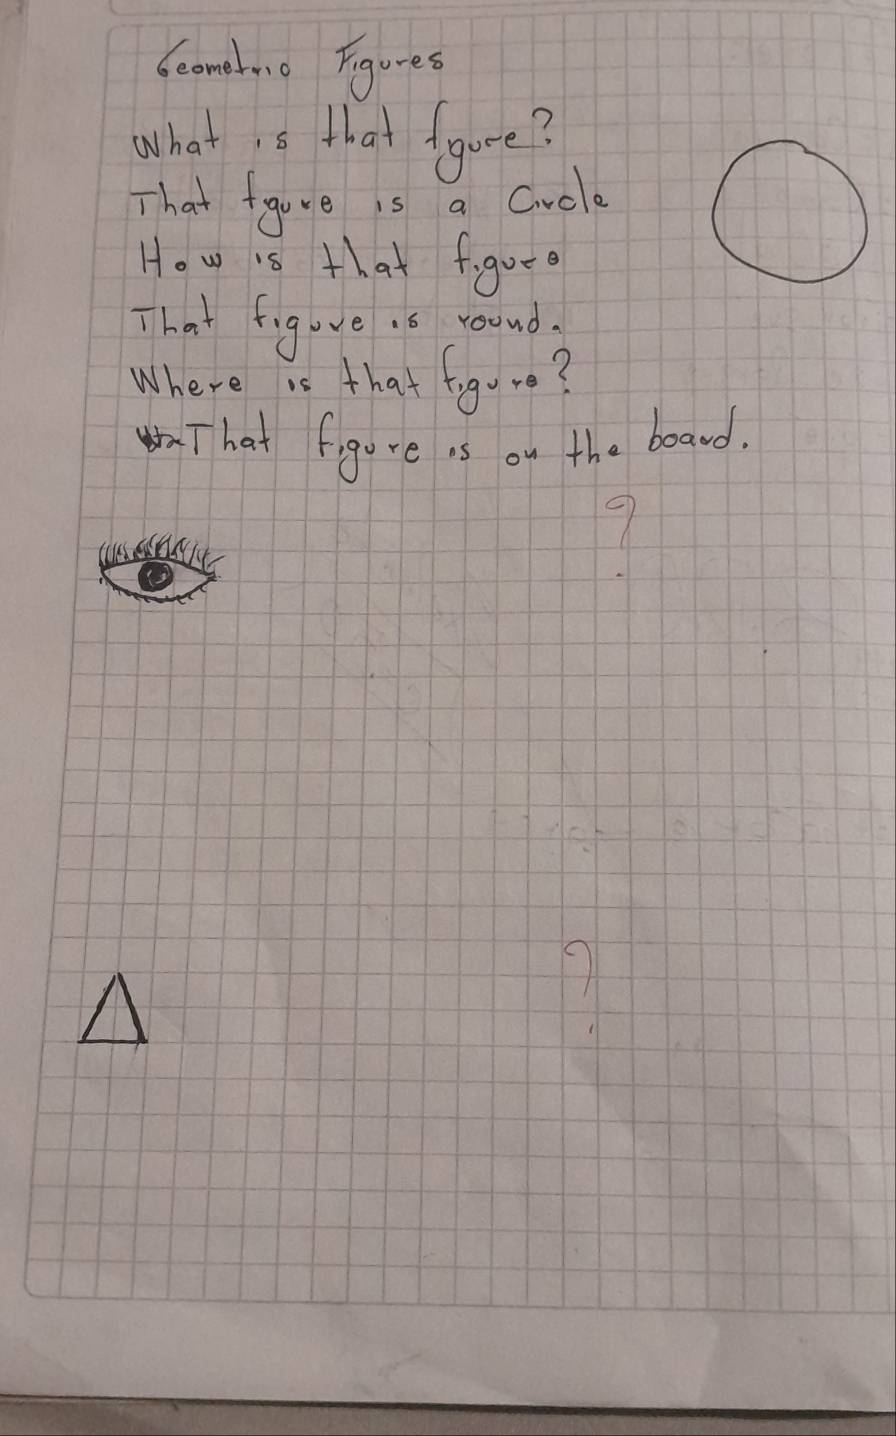 Geometric Figures
What is that fgure?
That fgure is a Circle
How is that figure
That figure is round.
Where is that figure?
That figure is on the board.
?
?